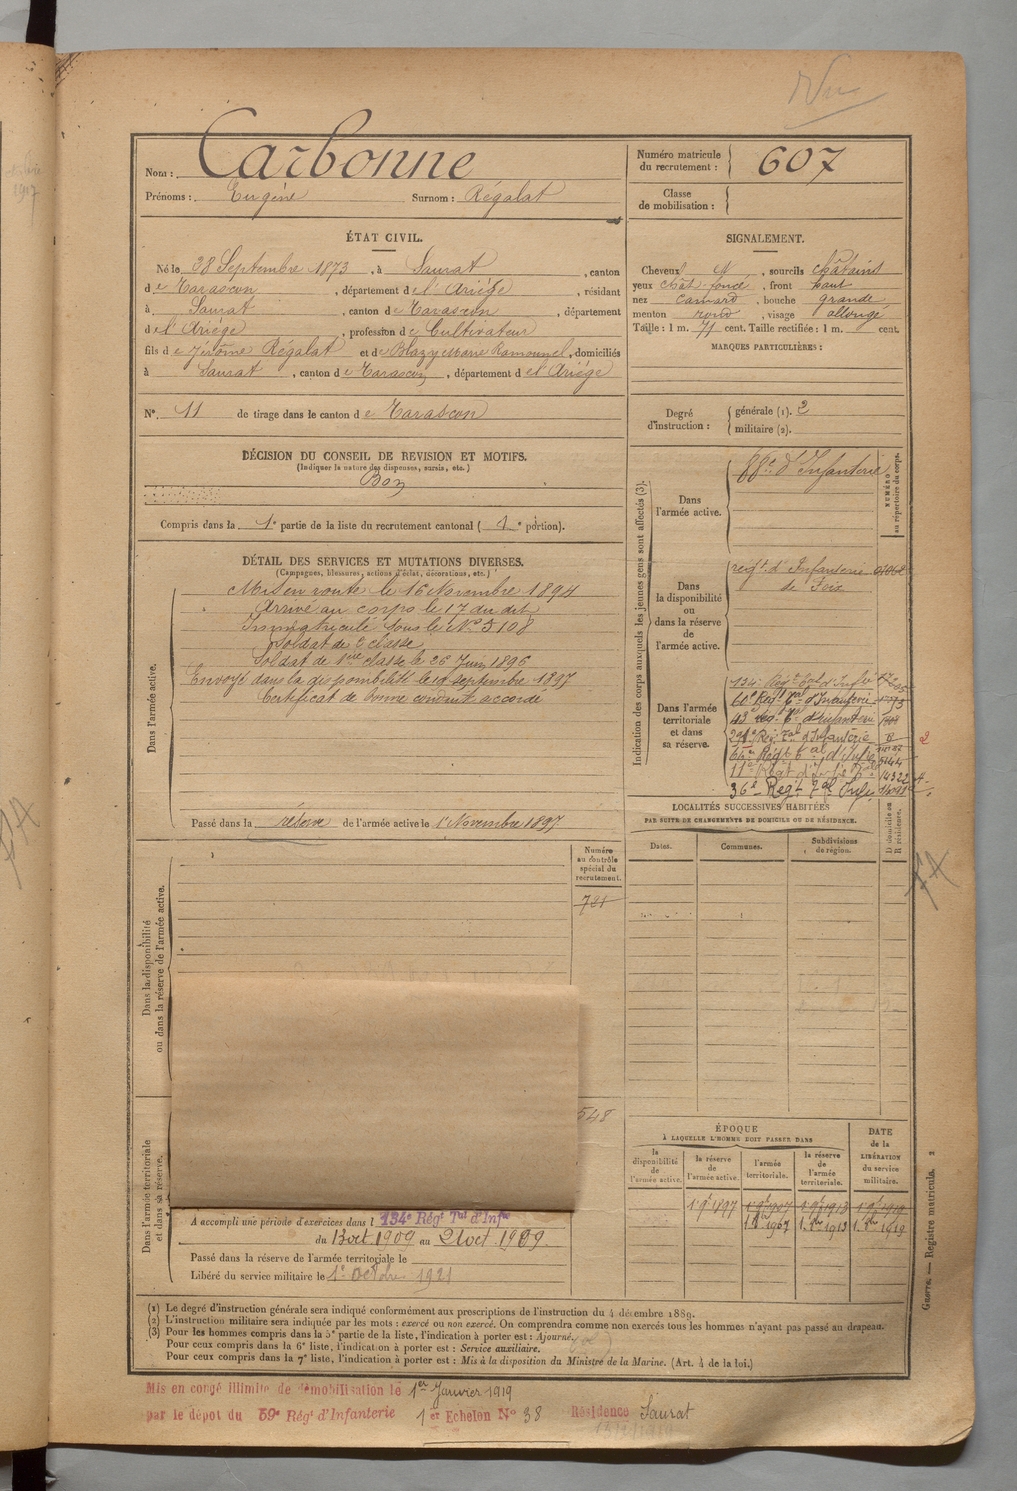 Nom : Carbonne
Prénoms : Eugène Surnom : Régalat
Numéro matricule du recrutement : 607
Classe de mobilisation :
ÉTAT CIVIL.
Né le 28 Septembre 1873, à Saurat, canton
de Tarascon, département de l'Ariège, résidant
à Saurat, canton de Tarascon, département
de l'Ariège, profession de Cultivateur
fils de Jérôme Régalat et de Blazy Marie Ramounel, domiciliés
à Saurat, canton de Tarascon, département de l'Ariège
N° 11 de tirage dans le canton de Tarascon
DÉCISION DU CONSEIL DE REVISION ET MOTIFS.
(Indiquer la nature des dispenses, sursis, etc.)
Bon
Compris dans la 1e partie de la liste du recrutement cantonal ( 1e portion).
SIGNALEMENT.
Cheveux N, sourcils châtains
yeux chât. foncé, front haut
nez camard, bouche grande
menton rond, visage allongé
Taille : 1 m. 71 cent. Taille rectifiée : 1 m. cent.
MARQUES PARTICULIÈRES :
Degré d'instruction : générale (1). 2
militaire (2).
DÉTAIL DES SERVICES ET MUTATIONS DIVERSES.
(Campagnes, blessures, actions d'éclat, décorations, etc.)
Dans l'armée active.
Mis en route le 16 Novembre 1894
Arrivé au corps le 17 du dit
Immatriculé sous le N° 5108
Soldat de 2e classe
Soldat de 1ère classe le 26 Juin 1896
Envoyé dans la disponibilité le 19 septembre 1897
Certificat de bonne conduite accordé
Passé dans la réserve de l'armée active le 1er Novembre 1897
Indication des corps auxquels les jeunes gens sont affectés (3).
NUMÉRO au répertoire du corps.
Dans l'armée active.
88e d'Infanterie
Dans la disponibilité ou dans la réserve de l'armée active.
regt. d'Infanterie
de Foix
Dans l'armée territoriale et dans sa réserve.
134e Regt tal d'Infie
43e reg. tal d'Infanterie
36e Regt tal Infie
LOCALITÉS SUCCESSIVES HABITÉES
PAR SUITE DE CHANGEMENTS DE DOMICILE OU DE RÉSIDENCE.
Dates. Communes. Subdivisions de région. D domicile ou R résidence.
Dans la disponibilité ou dans la réserve de l'armée active.
Numéro au contrôle spécial du recrutement.
721
548
Dans l'armée territoriale et dans sa réserve.
A accompli une période d'exercices dans l 134e Régt Tal d'Infie
du 13 oct 1909 au 21 oct 1909
Passé dans la réserve de l'armée territoriale le
Libéré du service militaire le 1er octobre 1921
ÉPOQUE
À LAQUELLE L'HOMME DOIT PASSER DANS
la disponibilité de l'armée active. la réserve de l'armée active. l'armée territoriale. la réserve de l'armée territoriale. DATE de la LIBÉRATION du service militaire.
1 9bre 1897 1 9bre 1907 1 9bre 1913 1 9bre 1919
1. 8bre 1907 1. 8bre 1913 1. 8bre 1919
(1) Le degré d'instruction générale sera indiqué conformément aux prescriptions de l'instruction du 4 décembre 1889.
(2) L'instruction militaire sera indiquée par les mots : exercé ou non exercé. On comprendra comme non exercés tous les hommes n'ayant pas passé au drapeau.
(3) Pour les hommes compris dans la 5e partie de la liste, l'indication à porter est : Ajourné.
Pour ceux compris dans la 6e liste, l'indication à porter est : Service auxiliaire.
Pour ceux compris dans la 7e liste, l'indication à porter est : Mis à la disposition du Ministre de la Marine. (Art. 4 de la loi.)
Guerre. — Registre matricule. 2
Mis en congé illimité de démobilisation le 1er Janvier 1919
par le dépôt du 59e Régt d'Infanterie 1er Echelon N° 38 Résidence Saurat